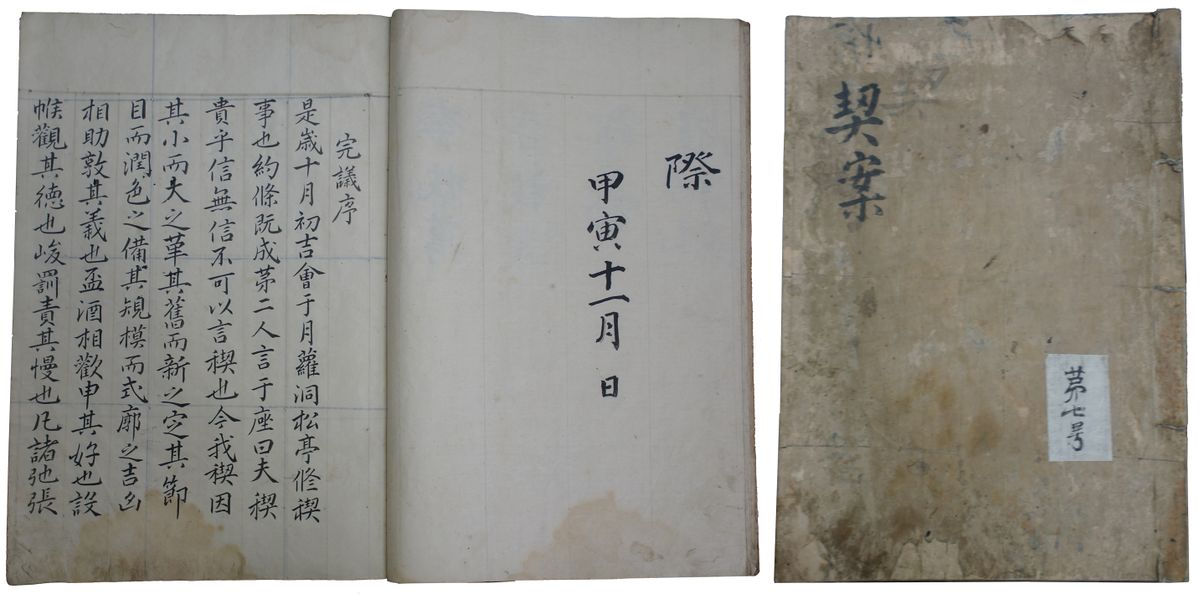 契案
苐七号
際
甲寅十一月 日
完議序
是歲十月初吉會于月蘿洞松亭修稧
事也約條旣成苐二人言于座曰夫稧
貴乎信無信不可以言稧也今我稧因
其小而大之革其舊而新之㝎其節
目而潤色之備其䂓模而式廓之吉凶
相助敦其義也盃酒相歡申其好也設
帿觀其德也峻罰責其慢也凡諸弛張